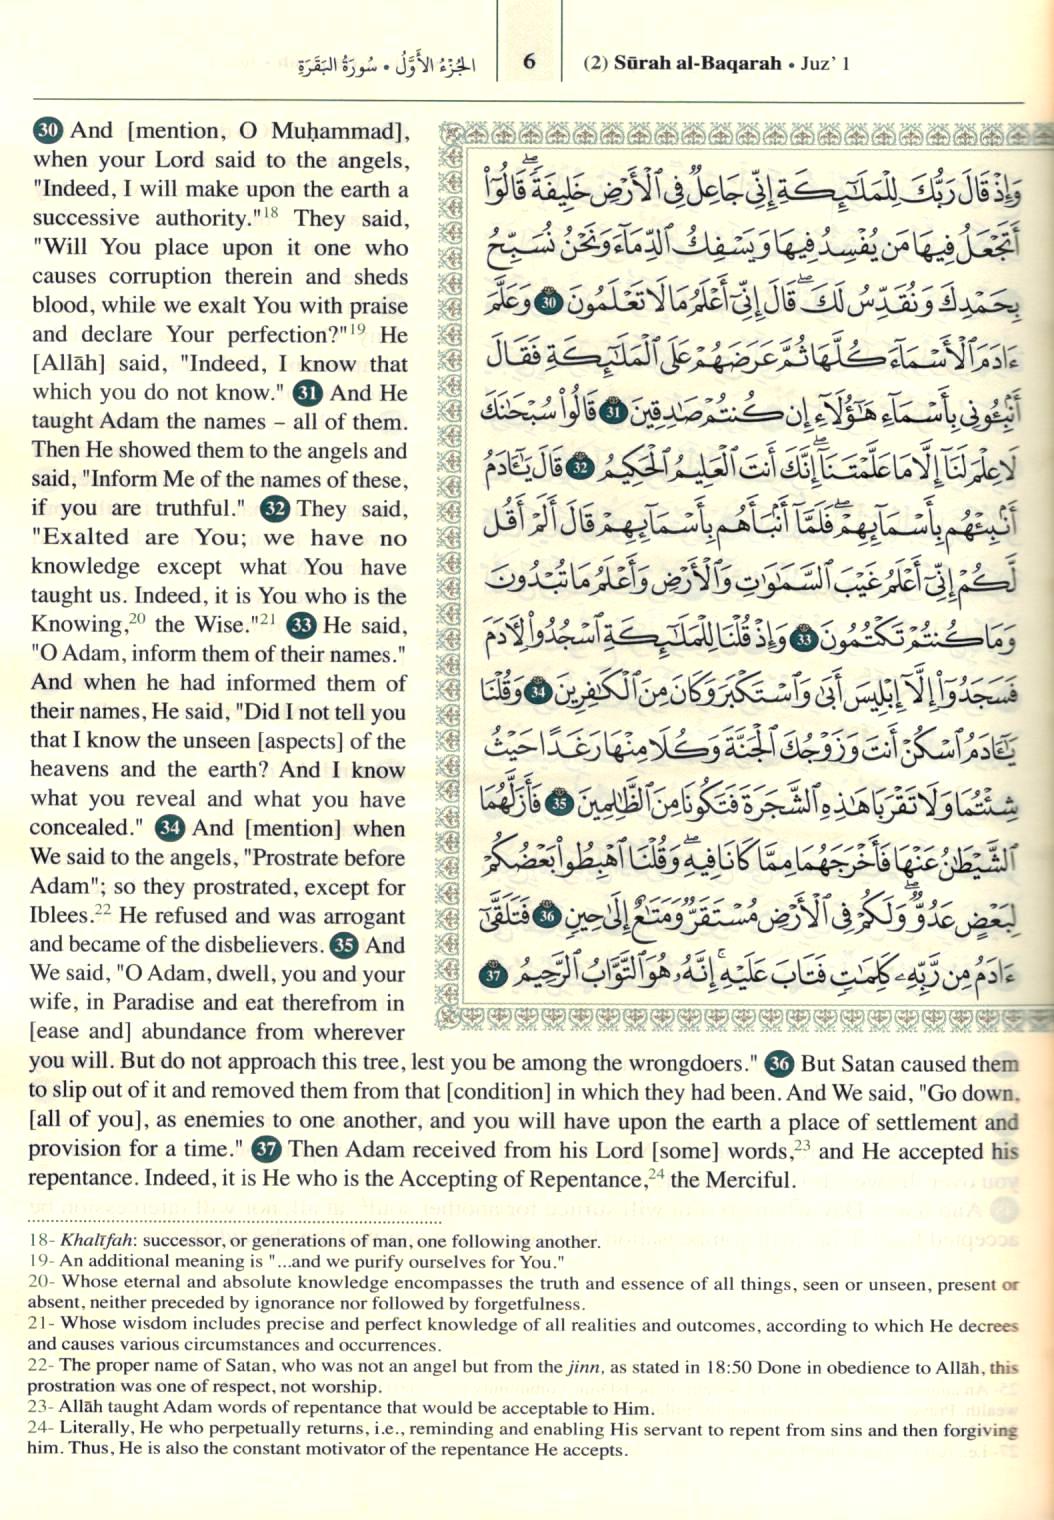 الجُزْءُ الأَوَّلُ • سُورَةُ البَقَرَةِ
6
(2) Sūrah al-Baqarah • Juz’ 1
30 And [mention, O Muḥammad],
when your Lord said to the angels,
"Indeed, I will make upon the earth a
successive authority."18 They said,
"Will You place upon it one who
causes corruption therein and sheds
blood, while we exalt You with praise
and declare Your perfection?"19 He
[Allāh] said, "Indeed, I know that
which you do not know." 31 And He
taught Adam the names – all of them.
Then He showed them to the angels and
said, "Inform Me of the names of these,
if you are truthful." 32 They said,
"Exalted are You; we have no
knowledge except what You have
taught us. Indeed, it is You who is the
Knowing,20 the Wise."21 33 He said,
"O Adam, inform them of their names."
And when he had informed them of
their names, He said, "Did I not tell you
that I know the unseen [aspects] of the
heavens and the earth? And I know
what you reveal and what you have
concealed." 34 And [mention] when
We said to the angels, "Prostrate before
Adam"; so they prostrated, except for
Iblees.22 He refused and was arrogant
and became of the disbelievers. 35 And
We said, "O Adam, dwell, you and your
wife, in Paradise and eat therefrom in
[ease and] abundance from wherever
you will. But do not approach this tree, lest you be among the wrongdoers." 36 But Satan caused them
to slip out of it and removed them from that [condition] in which they had been. And We said, "Go down,
[all of you], as enemies to one another, and you will have upon the earth a place of settlement and
provision for a time." 37 Then Adam received from his Lord [some] words,23 and He accepted his
repentance. Indeed, it is He who is the Accepting of Repentance,24 the Merciful.
وَإِذْ قَالَ رَبُّكَ لِلْمَلَٰٓئِكَةِ إِنِّي جَاعِلٌ فِي ٱلْأَرْضِ خَلِيفَةً ۖ قَالُوٓا۟
أَتَجْعَلُ فِيهَا مَن يُفْسِدُ فِيهَا وَيَسْفِكُ ٱلدِّمَآءَ وَنَحْنُ نُسَبِّحُ
بِحَمْدِكَ وَنُقَدِّسُ لَكَ ۖ قَالَ إِنِّيٓ أَعْلَمُ مَا لَا تَعْلَمُونَ 30 وَعَلَّمَ
ءَادَمَ ٱلْأَسْمَآءَ كُلَّهَا ثُمَّ عَرَضَهُمْ عَلَى ٱلْمَلَٰٓئِكَةِ فَقَالَ
أَنۢبِـُٔونِي بِأَسْمَآءِ هَٰٓؤُلَآءِ إِن كُنتُمْ صَٰدِقِينَ 31 قَالُوا۟ سُبْحَٰنَكَ
لَا عِلْمَ لَنَآ إِلَّا مَا عَلَّمْتَنَآ ۖ إِنَّكَ أَنتَ ٱلْعَلِيمُ ٱلْحَكِيمُ 32 قَالَ يَٰٓـَٔادَمُ
أَنۢبِئْهُم بِأَسْمَآئِهِمْ ۖ فَلَمَّآ أَنۢبَأَهُم بِأَسْمَآئِهِمْ قَالَ أَلَمْ أَقُل
لَّكُمْ إِنِّيٓ أَعْلَمُ غَيْبَ ٱلسَّمَٰوَٰتِ وَٱلْأَرْضِ وَأَعْلَمُ مَا تُبْدُونَ
وَمَا كُنتُمْ تَكْتُمُونَ 33 وَإِذْ قُلْنَا لِلْمَلَٰٓئِكَةِ ٱسْجُدُوا۟ لِـَٔادَمَ
فَسَجَدُوٓا۟ إِلَّآ إِبْلِيسَ أَبَىٰ وَٱسْتَكْبَرَ وَكَانَ مِنَ ٱلْكَٰفِرِينَ 34 وَقُلْنَا
يَٰٓـَٔادَمُ ٱسْكُنْ أَنتَ وَزَوْجُكَ ٱلْجَنَّةَ وَكُلَا مِنْهَا رَغَدًا حَيْثُ
شِئْتُمَا وَلَا تَقْرَبَا هَٰذِهِ ٱلشَّجَرَةَ فَتَكُونَا مِنَ ٱلظَّٰلِمِينَ 35 فَأَزَلَّهُمَا
ٱلشَّيْطَٰنُ عَنْهَا فَأَخْرَجَهُمَا مِمَّا كَانَا فِيهِ ۖ وَقُلْنَا ٱهْبِطُوا۟ بَعْضُكُمْ
لِبَعْضٍ عَدُوٌّ ۖ وَلَكُمْ فِي ٱلْأَرْضِ مُسْتَقَرٌّ وَمَتَٰعٌ إِلَىٰ حِينٍ 36 فَتَلَقَّىٰٓ
ءَادَمُ مِن رَّبِّهِۦ كَلِمَٰتٍ فَتَابَ عَلَيْهِ ۚ إِنَّهُۥ هُوَ ٱلتَّوَّابُ ٱلرَّحِيمُ 37
18- Khalīfah: successor, or generations of man, one following another.
19- An additional meaning is "...and we purify ourselves for You."
20- Whose eternal and absolute knowledge encompasses the truth and essence of all things, seen or unseen, present or
absent, neither preceded by ignorance nor followed by forgetfulness.
21- Whose wisdom includes precise and perfect knowledge of all realities and outcomes, according to which He decrees
and causes various circumstances and occurrences.
22- The proper name of Satan, who was not an angel but from the jinn, as stated in 18:50 Done in obedience to Allāh, this
prostration was one of respect, not worship.
23- Allāh taught Adam words of repentance that would be acceptable to Him.
24- Literally, He who perpetually returns, i.e., reminding and enabling His servant to repent from sins and then forgiving
him. Thus, He is also the constant motivator of the repentance He accepts.